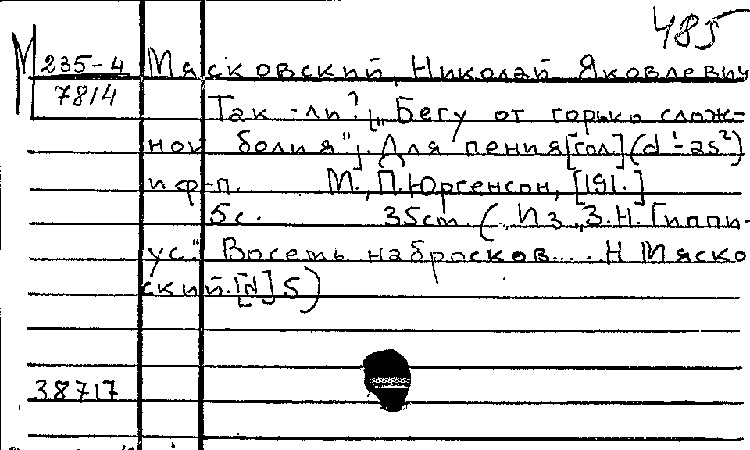 485
М 235-4 Мясковский, Николай Яковлевич
7814 Так-ли? [„Бегу от горько слож-
ной боли я"]. Для пения [гол.] (d¹-as²)
и ф-п. М., П. Юргенсон, [191.]
5с. 35cm. (,, Из „З.Н. Гиппи-
ус." Восемь набросков... Н Мяско
ский. [N] 5)
38717